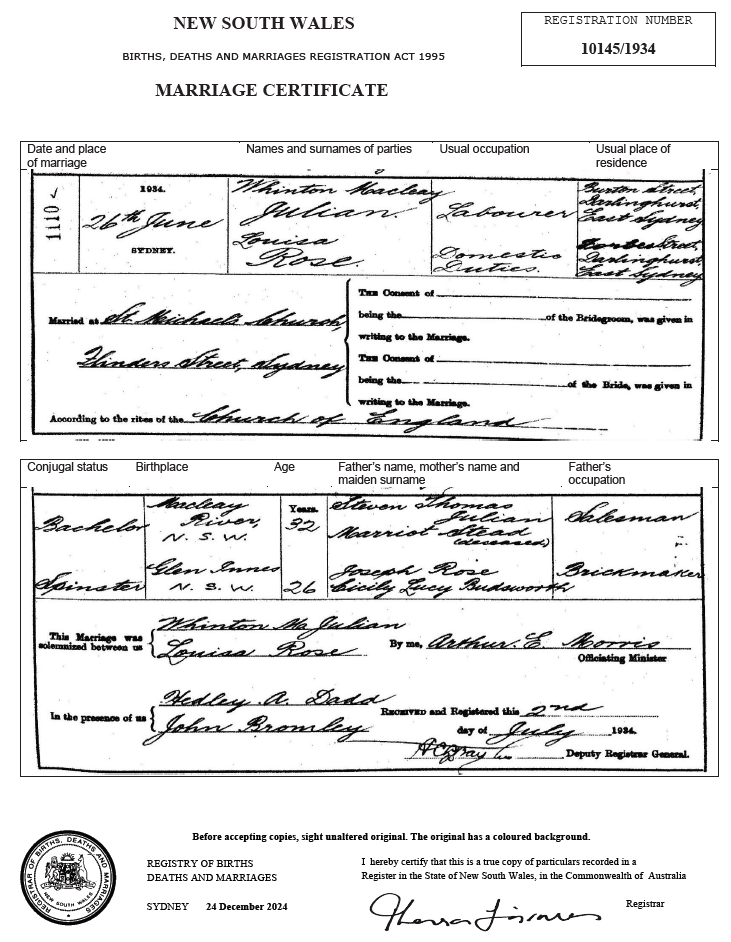 NEW SOUTH WALES
REGISTRATION NUMBER
10145/1934
BIRTHS, DEATHS AND MARRIAGES REGISTRATION ACT 1995
MARRIAGE CERTIFICATE
Date and place of marriage
Names and surnames of parties
Usual occupation
Usual place of residence
1110
1934.
26th June
SYDNEY.
Whinton Macleay
Julian.
Louisa
Rose.
Labourer
Domestic
Duties.
Burton Street,
Darlinghurst,
East Sydney
Forbes Street,
Darlinghurst,
East Sydney
Married at St. Michael's Church,
Flinders Street, Sydney
THE Consent of
being the of the Bridegroom, was given in
writing to the Marriage.
THE Consent of
being the of the Bride, was given in
writing to the Marriage.
According to the rites of the Church of England
Conjugal status
Birthplace
Age
Father's name, mother's name and maiden surname
Father's occupation
Bachelor
Macleay
River,
N. S. W.
Years.
32
Steven Thomas
Julian
Marriot Stead
(deceased)
Salesman
Spinster
Glen Innes
N. S. W.
26
Joseph Rose
Cicily Lucy Budsworth
Brickmaker
This Marriage was
solemnized between us
Whinton Ma Julian
Louisa Rose
By me, Arthur. E. Morris
Officiating Minister
In the presence of us
Hedley A. Dadd
John Bromley
RECEIVED and Registered this 2nd
day of July 1934.
Deputy Registrar General.
Before accepting copies, sight unaltered original. The original has a coloured background.
REGISTRAR OF BIRTHS, DEATHS AND MARRIAGES
NEW SOUTH WALES
REGISTRY OF BIRTHS
DEATHS AND MARRIAGES
SYDNEY 24 December 2024
I hereby certify that this is a true copy of particulars recorded in a
Register in the State of New South Wales, in the Commonwealth of Australia
Registrar